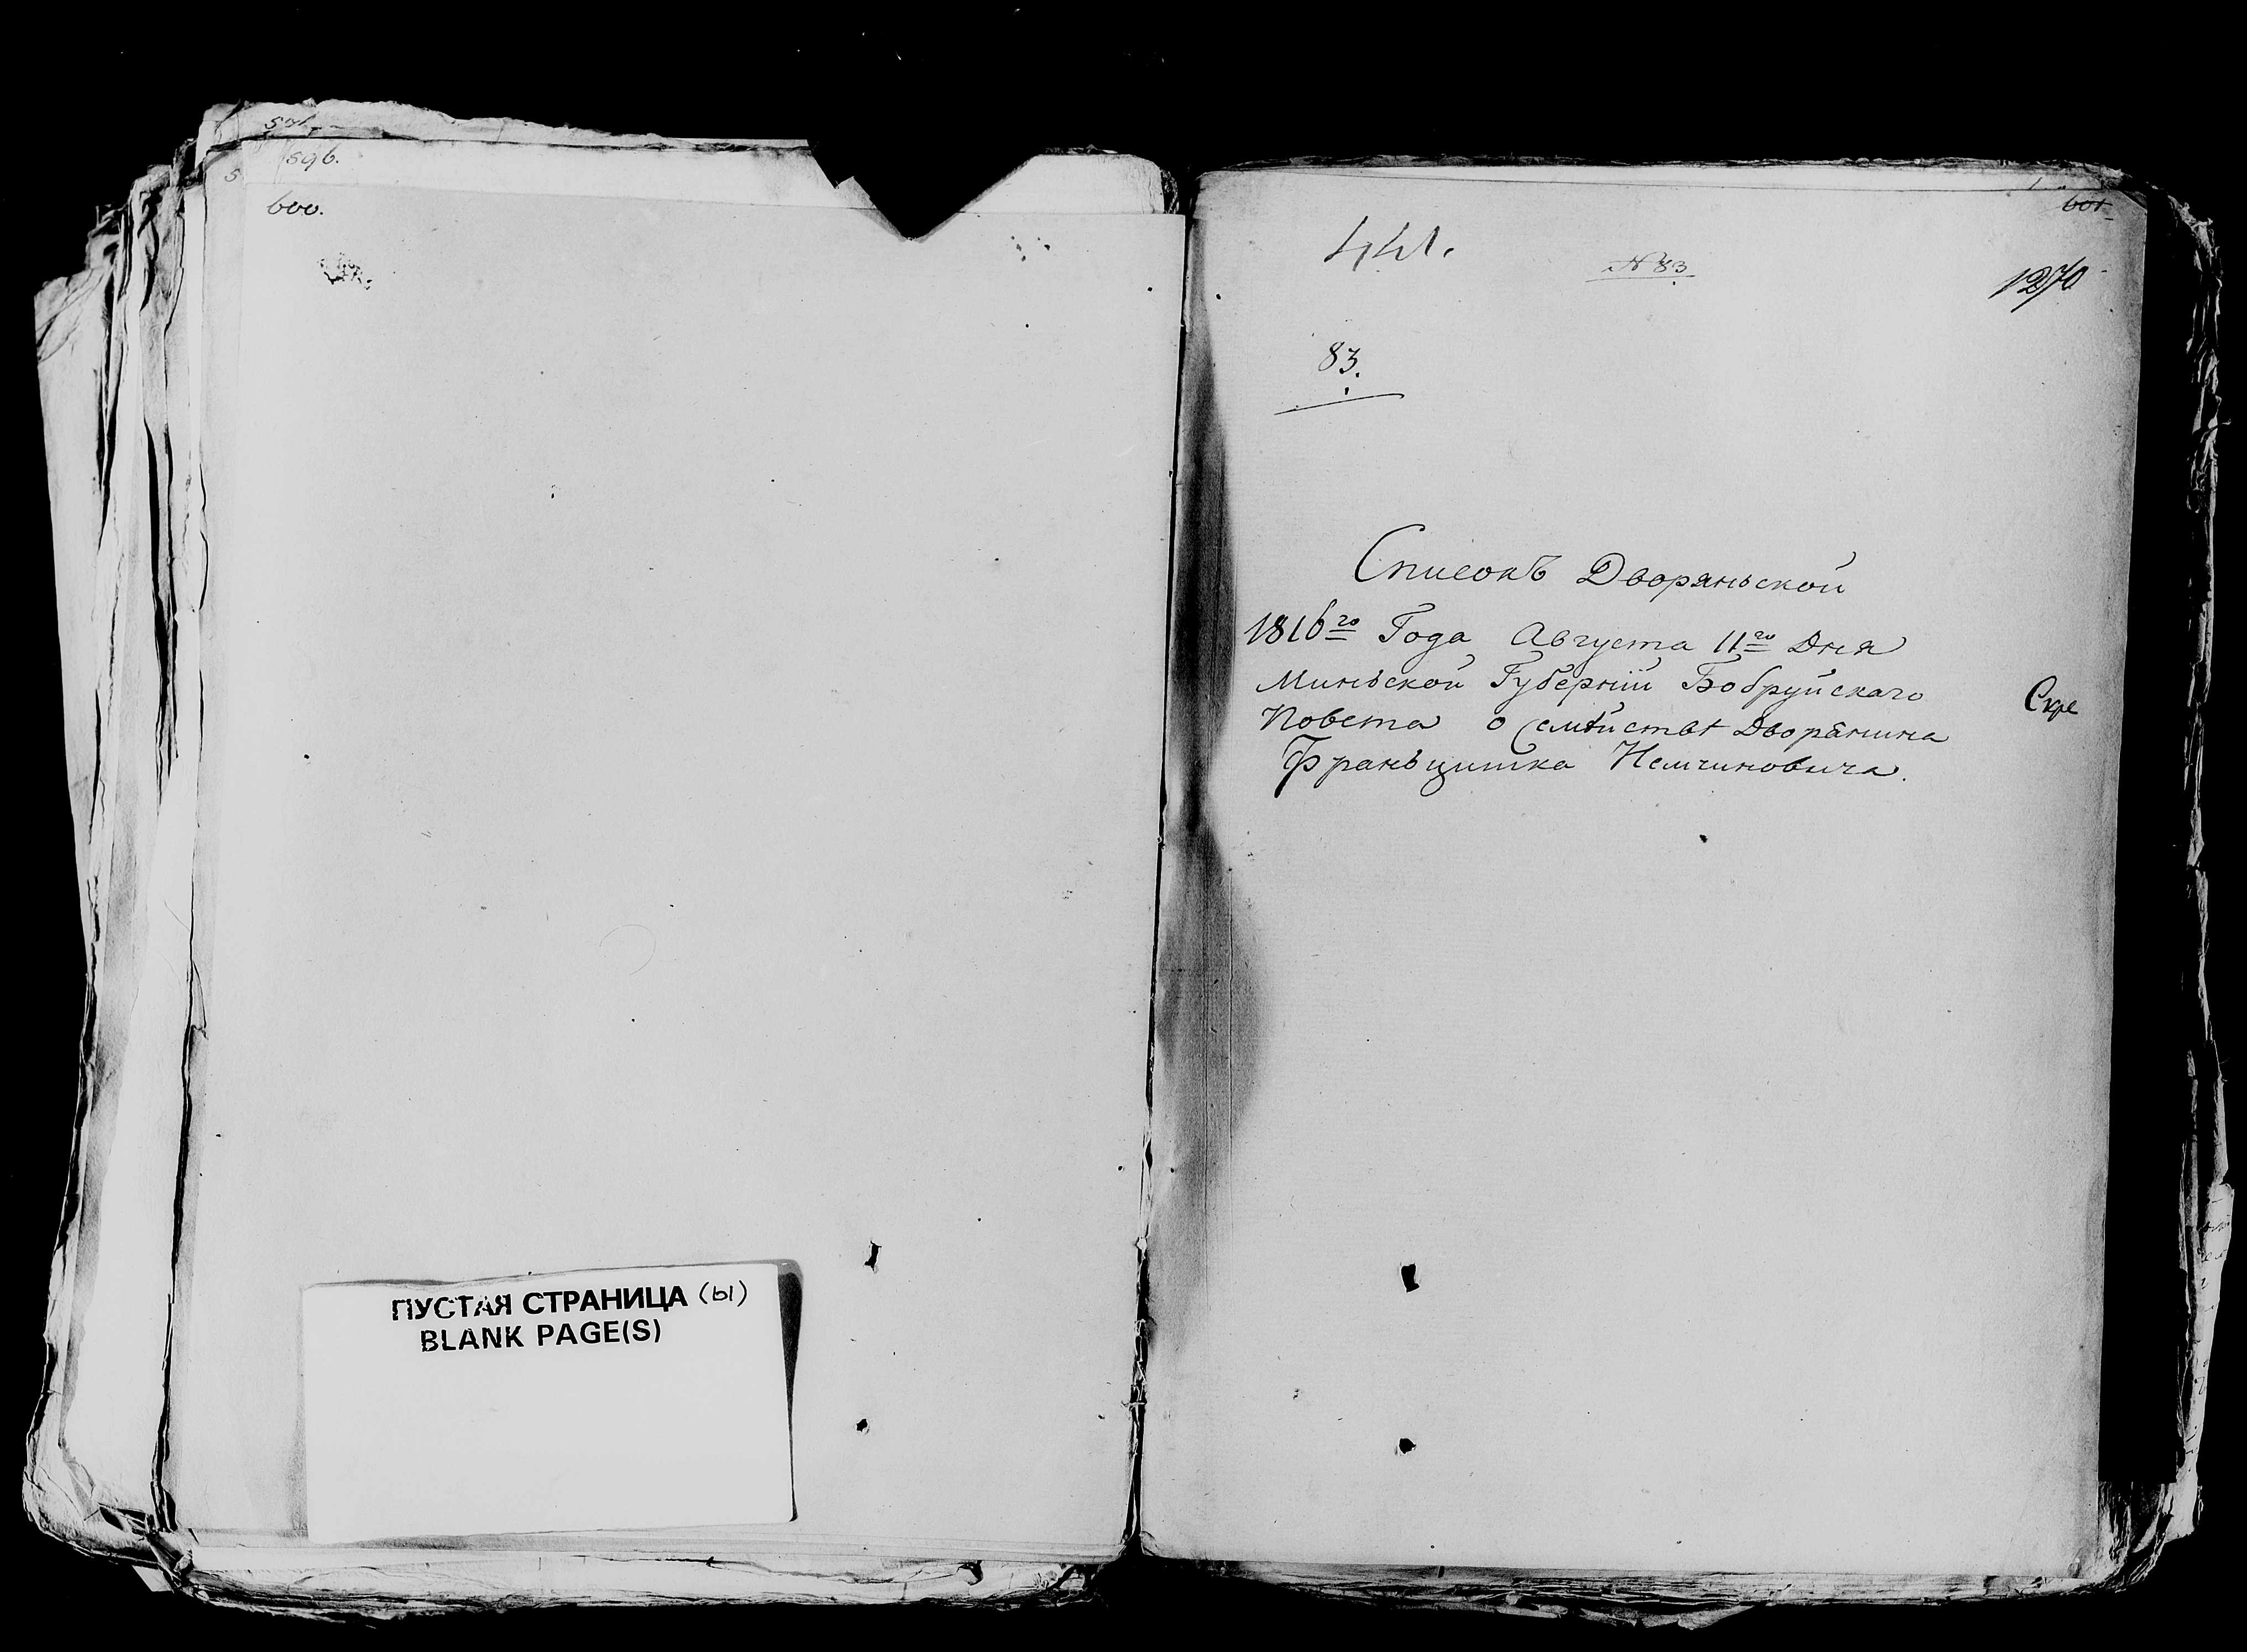 596.
600.
ПУСТАЯ СТРАНИЦА (ы)
BLANK PAGE(S)
601
441.
№ 83
1270
83.
Списокъ Дворяньской
1816го Года Августа 11го Дня
Миньской Губернiи Бобруйскаго
Повета о Семѣйствѣ Дворянина
Франьцишка Немчиновича.
Скре